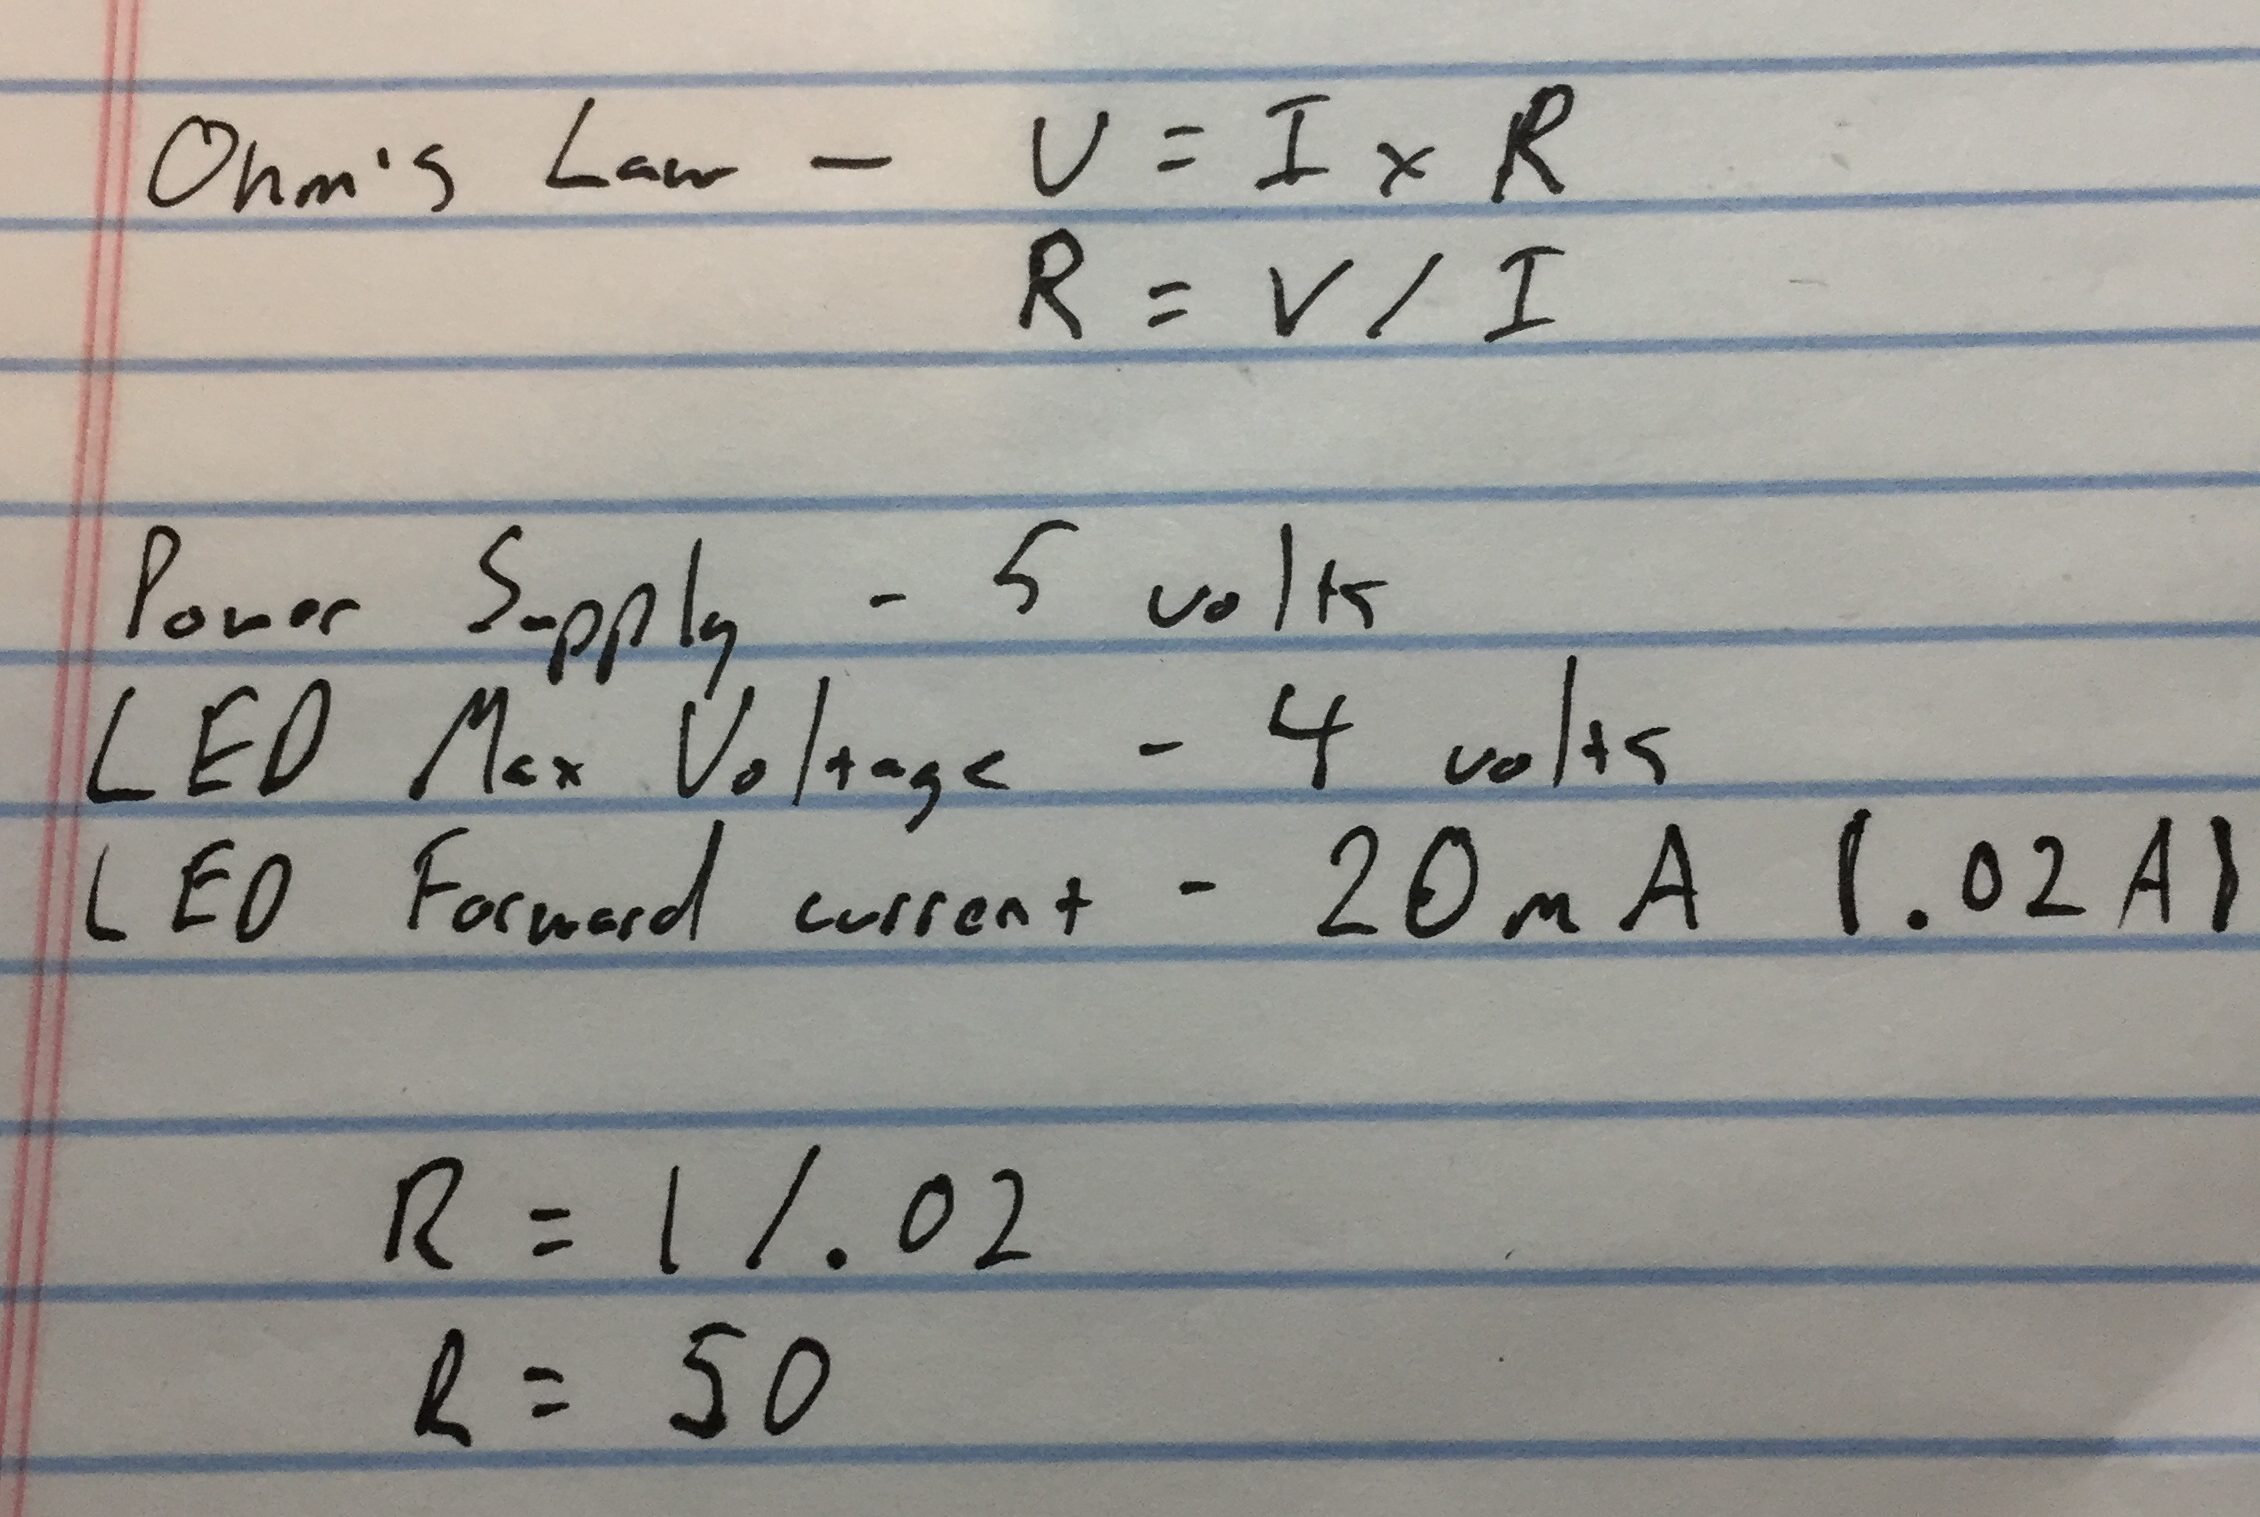 Ohm's Law - V = I x R
R = V / I
Power Supply - 5 volts
LED Max Voltage - 4 volts
LED Forward current - 20mA (.02A)
R = 1 / .02
R = 50